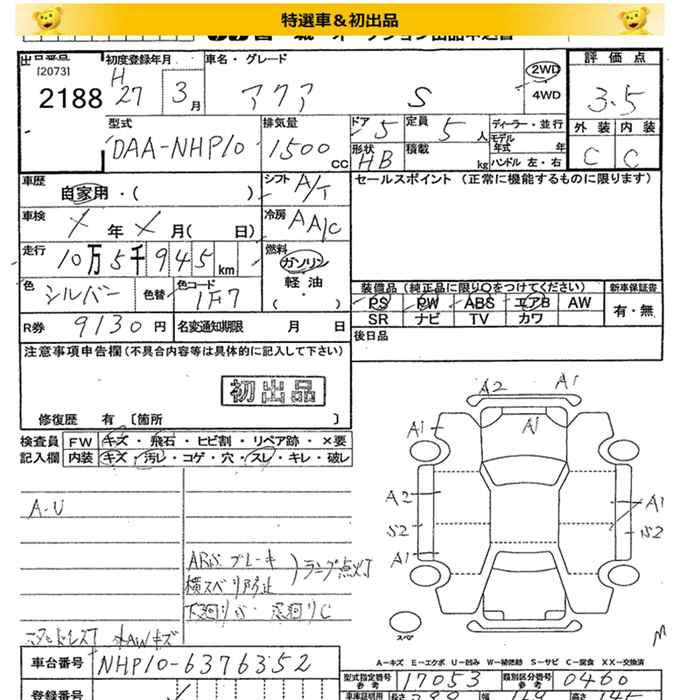 特選車＆初出品
[2073]
2188
初度登録年月
H
27 3 月
車名・グレード
アクア S
2WD
4WD
評価点
3.5
外装 内装
C C
型式
DAA-NHP10
排気量
1500 cc
ドア 5
定員 5 人
形状 HB
積載 kg
ディーラー・並行
モデル
年式 年
ハンドル 左・右
車歴
自家用・( )
シフト A/T
セールスポイント (正常に機能するものに限ります)
車検
年 月( 日)
冷房 AAC
走行
10万5千945 km
燃料
ガソリン
軽油
( )
色 シルバー 色替
色コード
1F7
装備品 (純正品に限り○をつけてください)
PS PW ABS エアB AW
SR ナビ TV カワ
新車保証書
有・無
R券 9130 円
名変通知期限 月 日
後日品
注意事項申告欄 (不具合内容等は具体的に記入して下さい)
初出品
修復歴 有 〔箇所 〕
検査員
記入欄
FW キズ・飛石・ヒビ割・リペア跡・×要
内装 キズ・汚レ・コゲ・穴・スレ・キレ・破レ
A2 A1
A1 A1
A2 A1
S2 S2
A1
A-U
ABS ブレーキ
横スベリ防止
ランプ点灯
スペア
A－キズ E－エクボ U－凹み W－補修跡 S－サビ C－腐食 XX－交換済
車台番号 NHP10-6376352
型式指定番号
参考
17053
類別区分番号
参考
0460
登録番号